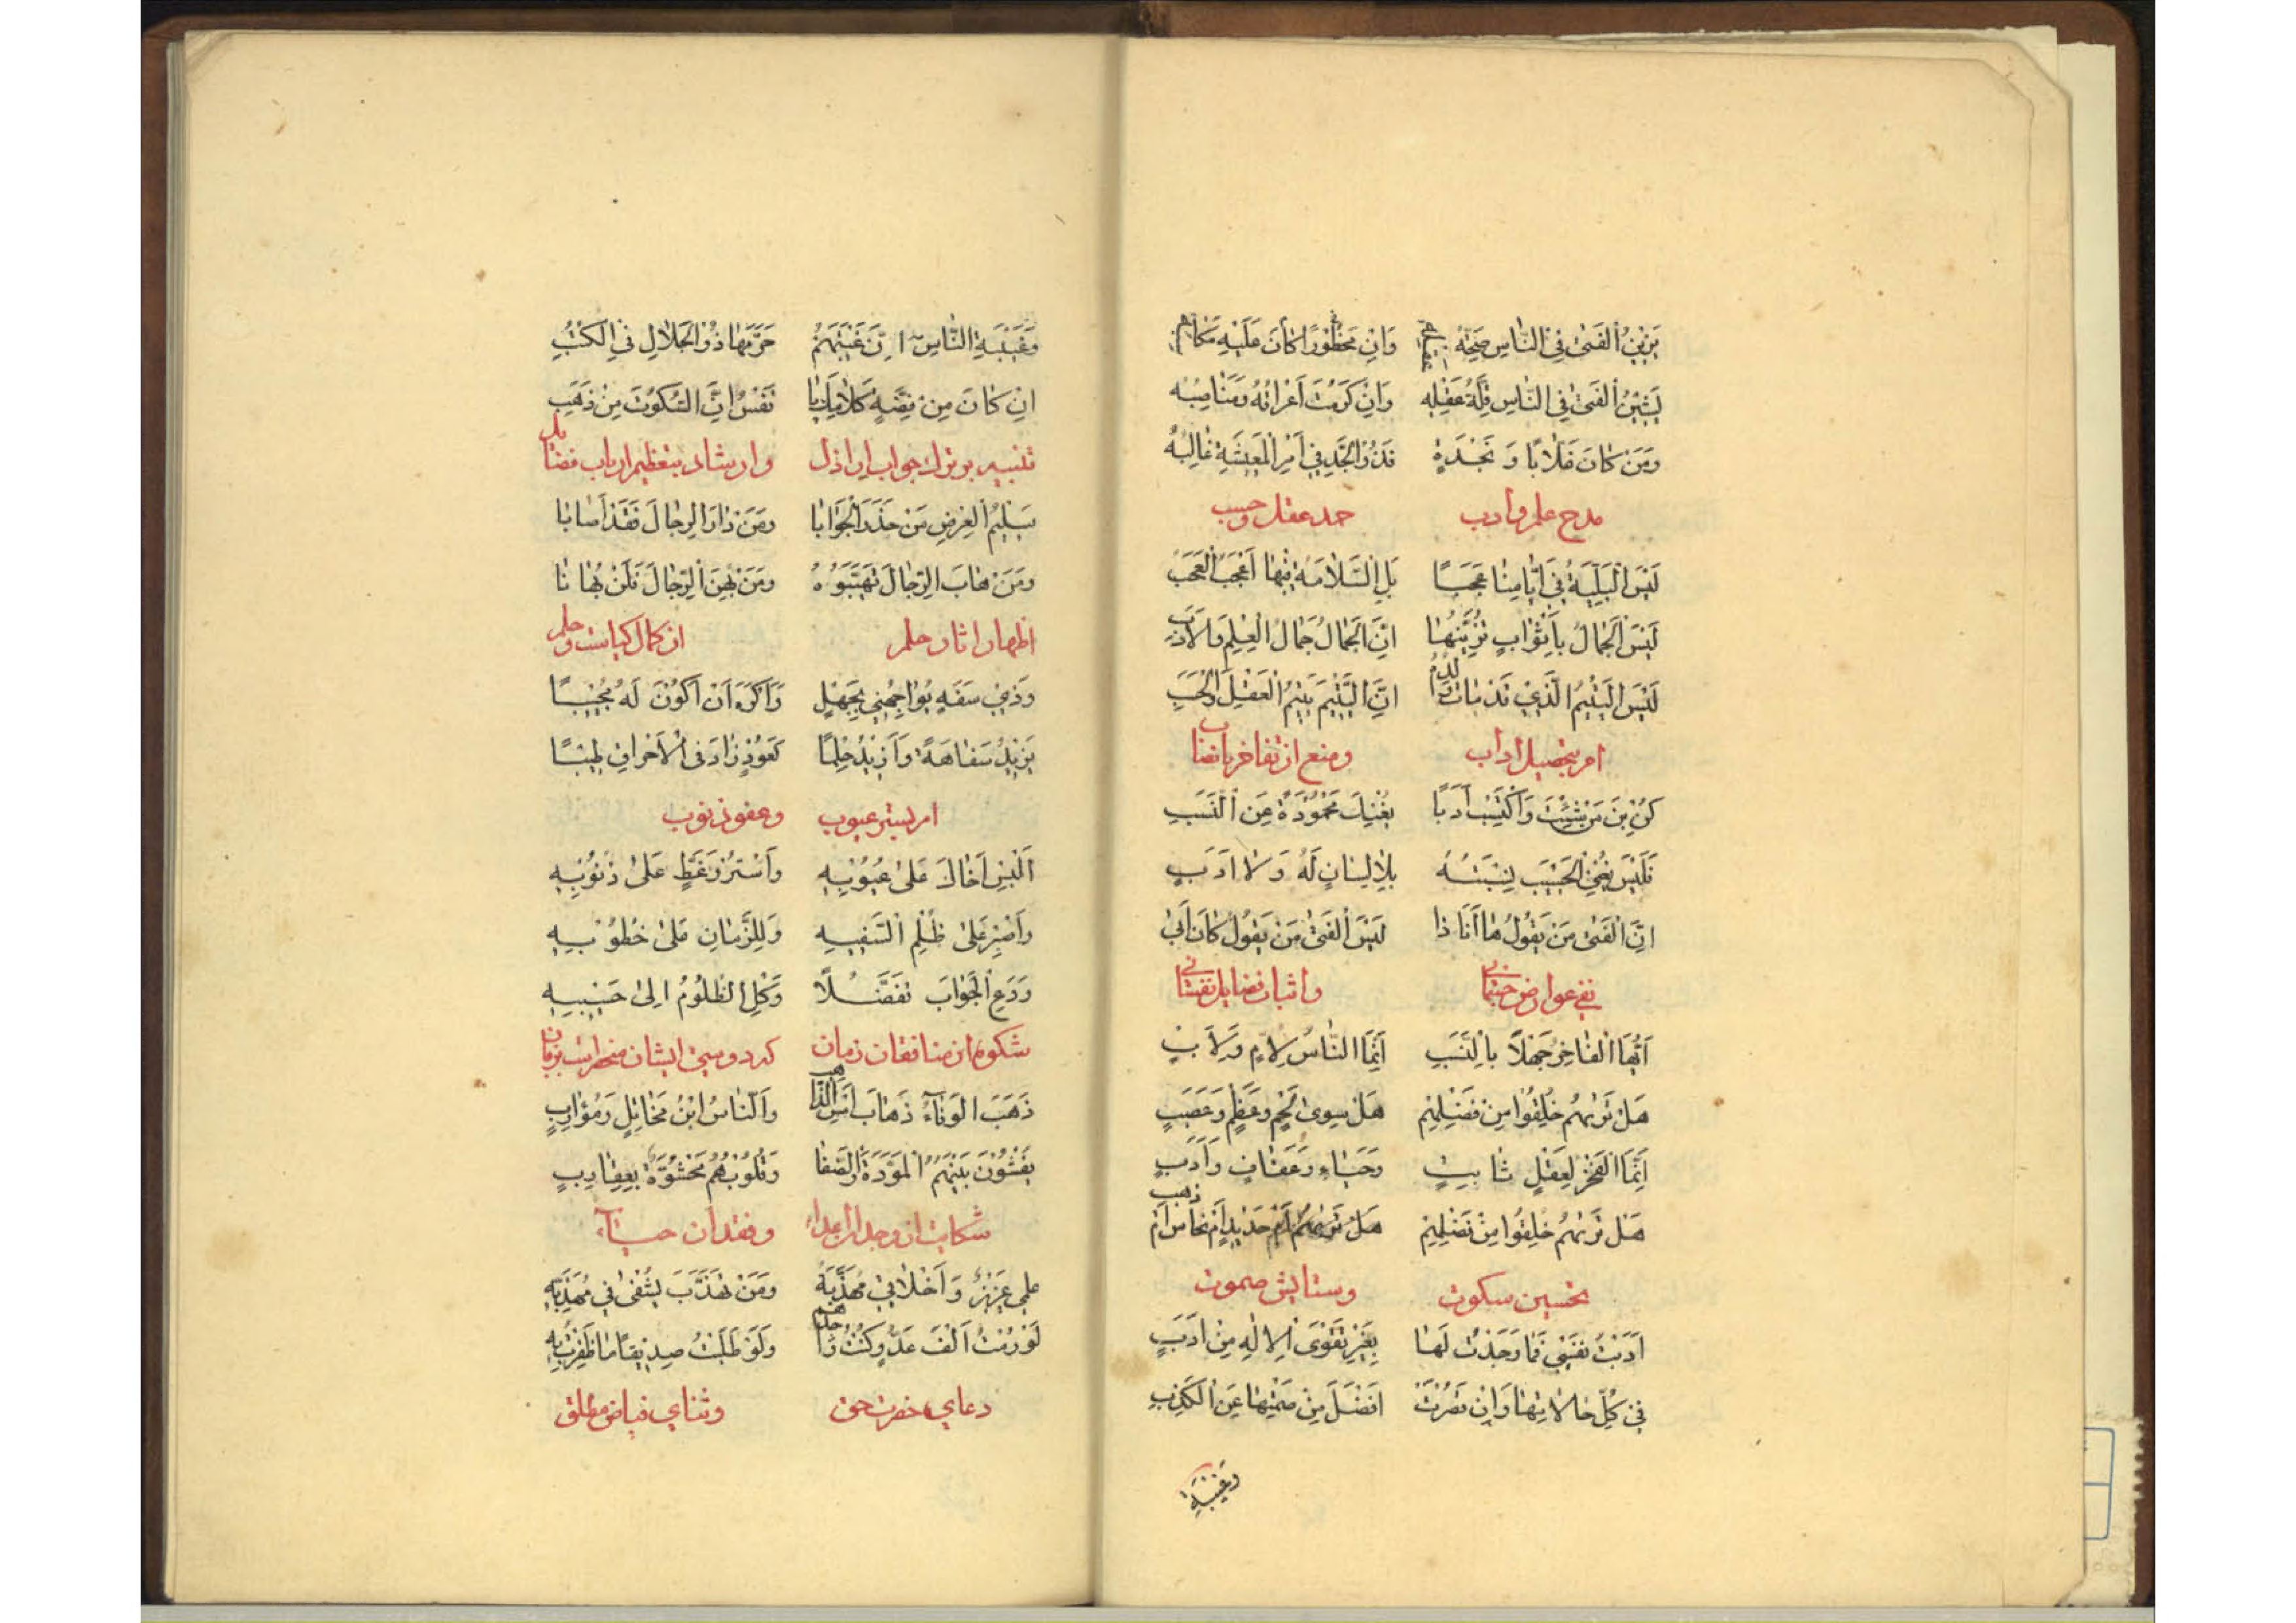 يَزِينُ الفَتىٰ فِي النّاسِ صِحَّةُ عَقْلِهِ وَاِنْ مَحْظُورًا كانَ عَلَيْهِ مَكاسِبُهُ
يَشِينُ الفَتىٰ فِي النّاسِ قِلَّةُ عَقْلِهِ وَاِنْ كَرُمَتْ اَعْراقُهُ وَمَناصِبُهُ
وَمَنْ كانَ غَلّابًا وَ نَجْدَةٍ فَذُو الْجَدِّ فِي اَمْرِ الْمَعِيشَةِ غالِبُهُ
مدح علم وادب حمد عقل وحسب
لَيْسَ الْبَلِيَّةُ فِي اَيّامِنا عَجَبًا بَلِ السَّلامَةُ فِيها اَعْجَبُ الْعَجَبِ
لَيْسَ الْجَمالُ بِاَثْوابٍ تُزَيِّنُها اِنَّ الْجَمالَ جَمالُ الْعِلْمِ وَالْاَدَبِ
لَيْسَ الْيَتِيمُ الَّذِي قَدْ ماتَ والِدُهُ اِنَّ الْيَتِيمَ يَتِيمُ الْعَقْلِ وَالْحَسَبِ
امر بتحصيل اداب ومنع از تفاخر بانساب
كُنْ بْنَ مَنْ شِئْتَ وَاكْتَسِبْ اَدَبًا يُغْنِيكَ مَحْمُودَةً عَنِ النَّسَبِ
فَلَيْسَ يُغْنِي الْحَسِيبَ نِسْبَتُهُ بِلا لِسانٍ لَهُ وَلا اَدَبٍ
اِنَّ الْفَتىٰ مَنْ يَقُولُ ها اَنَا ذا لَيْسَ الْفَتىٰ مَنْ يَقُولُ كانَ اَبِي
نفي عوارض جسماني واثبات فضايل نفساني
اَيُّهَا الْفاخِرُ جَهْلًا بِالنَّسَبِ اِنَّمَا النّاسُ لِاُمٍّ وَلِاَبٍ
هَلْ تَرٰىهُمْ خُلِقُوا مِنْ فَضْلِهِمْ هَلْ سِوىٰ لَحْمٍ وَعَظْمٍ وَعَصَبٍ
اِنَّمَا الْفَخْرُ لِعَقْلٍ ثابِتٍ وَحَياءٍ وَعَفافٍ وَاَدَبٍ
هَلْ تَرٰىهُمْ خُلِقُوا مِنْ فَضْلِهِمْ هَلْ تَرٰىهُمْ اَمْ حَدِيدٍ اَمْ نُحاسٍ اَمْ ذهب
تحسين سكوت وستايش صموت
اَدَّبْتُ نَفْسِي فَما وَجَدْتُ لَها بِغَيْرِ تَقْوَى الْاِلٰهِ مِنْ اَدَبٍ
فِي كُلِّ حالاتِها وَاِنْ قَصُرَتْ اَفْضَلَ مِنْ صَمْتِها عَنِ الْكَذِبِ
وغيبة
وَغَيْبَةِ النّاسِ اِنَّ غَيْبَتَهُمْ حَرَّمَها ذُو الْجَلالِ فِي الْكُتُبِ
اِنْ كانَ مِنْ فِضَّةٍ كَلامُكِ يا نَفْسُ اِنَّ السُّكُوتَ مِنْ ذَهَبٍ
تنبيه بر ترك جواب اراذل وارشاد بتعظيم ارباب فضايل
سَلِيمُ الْعِرْضِ مَنْ حَذَرَ الْجَوابا وَمَنْ دارَ الرِّجالَ فَقَدْ اَصابا
وَمَنْ هابَ الرِّجالَ تَهَيَّبُوهُ وَمَنْ يُهِنِ الرِّجالَ فَلَنْ يُهابا
اظهار اثار حلم از كمال كياست وحلم
وَذِي سَفَهٍ يُواجِهُنِي بِجَهْلٍ وَاَكْرَهُ اَنْ اَكُونَ لَهُ مُجِيبًا
يَزِيدُ سَفاهَةً وَاَزِيدُ حِلْمًا كَعُودٍ زادَ فِى الْاِحْراقِ طِيبًا
امر بستر عيوب وعفو ذنوب
اَلْبِسْ اَخاكَ عَلىٰ عُيُوبِهِ وَاسْتُرْ وَغَطِّ عَلىٰ ذُنُوبِهِ
وَاصْبِرْ عَلىٰ ظُلْمِ السَّفِيهِ وَلِلزَّمانِ عَلىٰ خُطُوبِهِ
وَدَعِ الْجَوابَ تَفَضُّلًا وَكِلِ الظَّلُومَ اِلىٰ حَسِيبِهِ
شكوه از منافقان زمان كه دوستي ايشان منحصر است بزبان
ذَهَبَ الْوَفاءُ ذَهابَ اَمْسِ الذّاهب وَالنّاسُ ابْنُ مُخاتِلٍ وَمُؤارِبٍ
يَفْشُونَ بَيْنَهُمُ الْمَوَدَّةَ وَالصَّفا وَقُلُوبُهُمْ مَحْشُوَّةٌ بِعَقارِبٍ
شكايت از وجدان اعداء وفقدان احباء
عِلْمِي عَزِيزٌ وَاَخْلاقِي مُهَذَّبَةٌ وَمَنْ تَهَذَّبَ يَشْقىٰ فِي تَهَذُّبِهِ
لَوْ رُمْتُ اَلْفَ عَدُوٍّ كُنْتُ واجدهم وَلَوْ طَلَبْتُ صِدِيقًا ما ظَفِرْتُ بِهِ
دعاي حضرت حق وثناي فياض مطلق